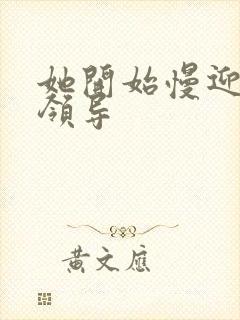 她開始慢迎
領导
黃文應